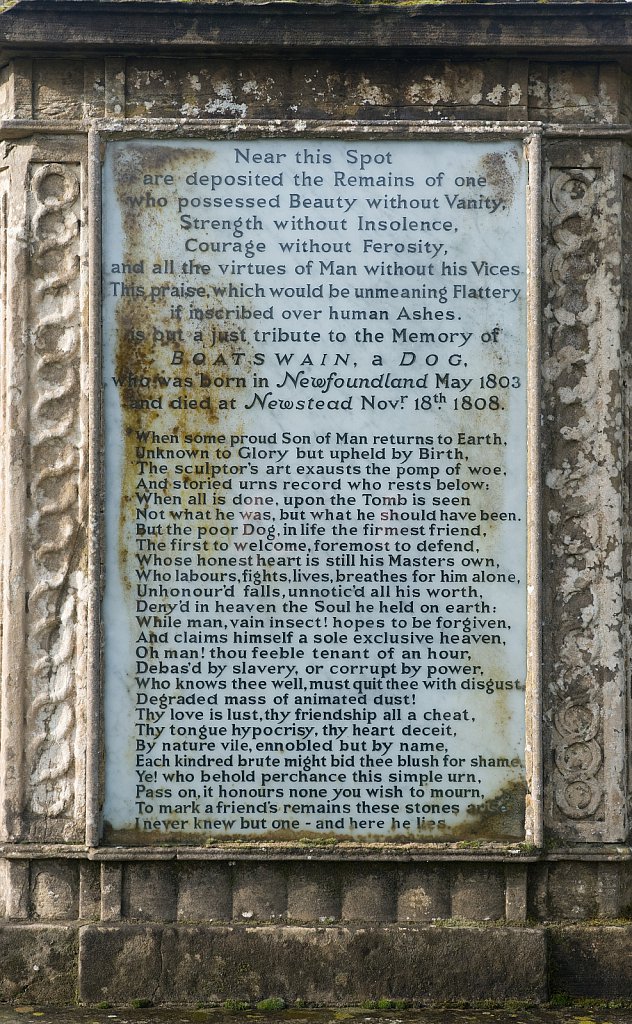 Near this Spot
are deposited the Remains of one
who possessed Beauty without Vanity,
Strength without Insolence,
Courage without Ferosity,
and all the virtues of Man without his Vices.
This praise, which would be unmeaning Flattery
if inscribed over human Ashes.
is but a just tribute to the Memory of
BOATSWAIN, a DOG,
who was born in Newfoundland May 1803
and died at Newstead Novr. 18th. 1808.
When some proud Son of Man returns to Earth,
Unknown to Glory but upheld by Birth,
The sculptor's art exausts the pomp of woe,
And storied urns record who rests below:
When all is done, upon the Tomb is seen
Not what he was, but what he should have been.
But the poor Dog, in life the firmest friend,
The first to welcome, foremost to defend,
Whose honest heart is still his Masters own,
Who labours, fights, lives, breathes for him alone,
Unhonour'd falls, unnotic'd all his worth,
Deny'd in heaven the Soul he held on earth:
While man, vain insect! hopes to be forgiven,
And claims himself a sole exclusive heaven,
Oh man! thou feeble tenant of an hour,
Debas'd by slavery, or corrupt by power,
Who knows thee well, must quit thee with disgust,
Degraded mass of animated dust!
Thy love is lust, thy friendship all a cheat,
Thy tongue hypocrisy, thy heart deceit,
By nature vile, ennobled but by name,
Each kindred brute might bid thee blush for shame,
Ye! who behold perchance this simple urn,
Pass on, it honours none you wish to mourn,
To mark a friend's remains these stones arise
I never knew but one - and here he lies.